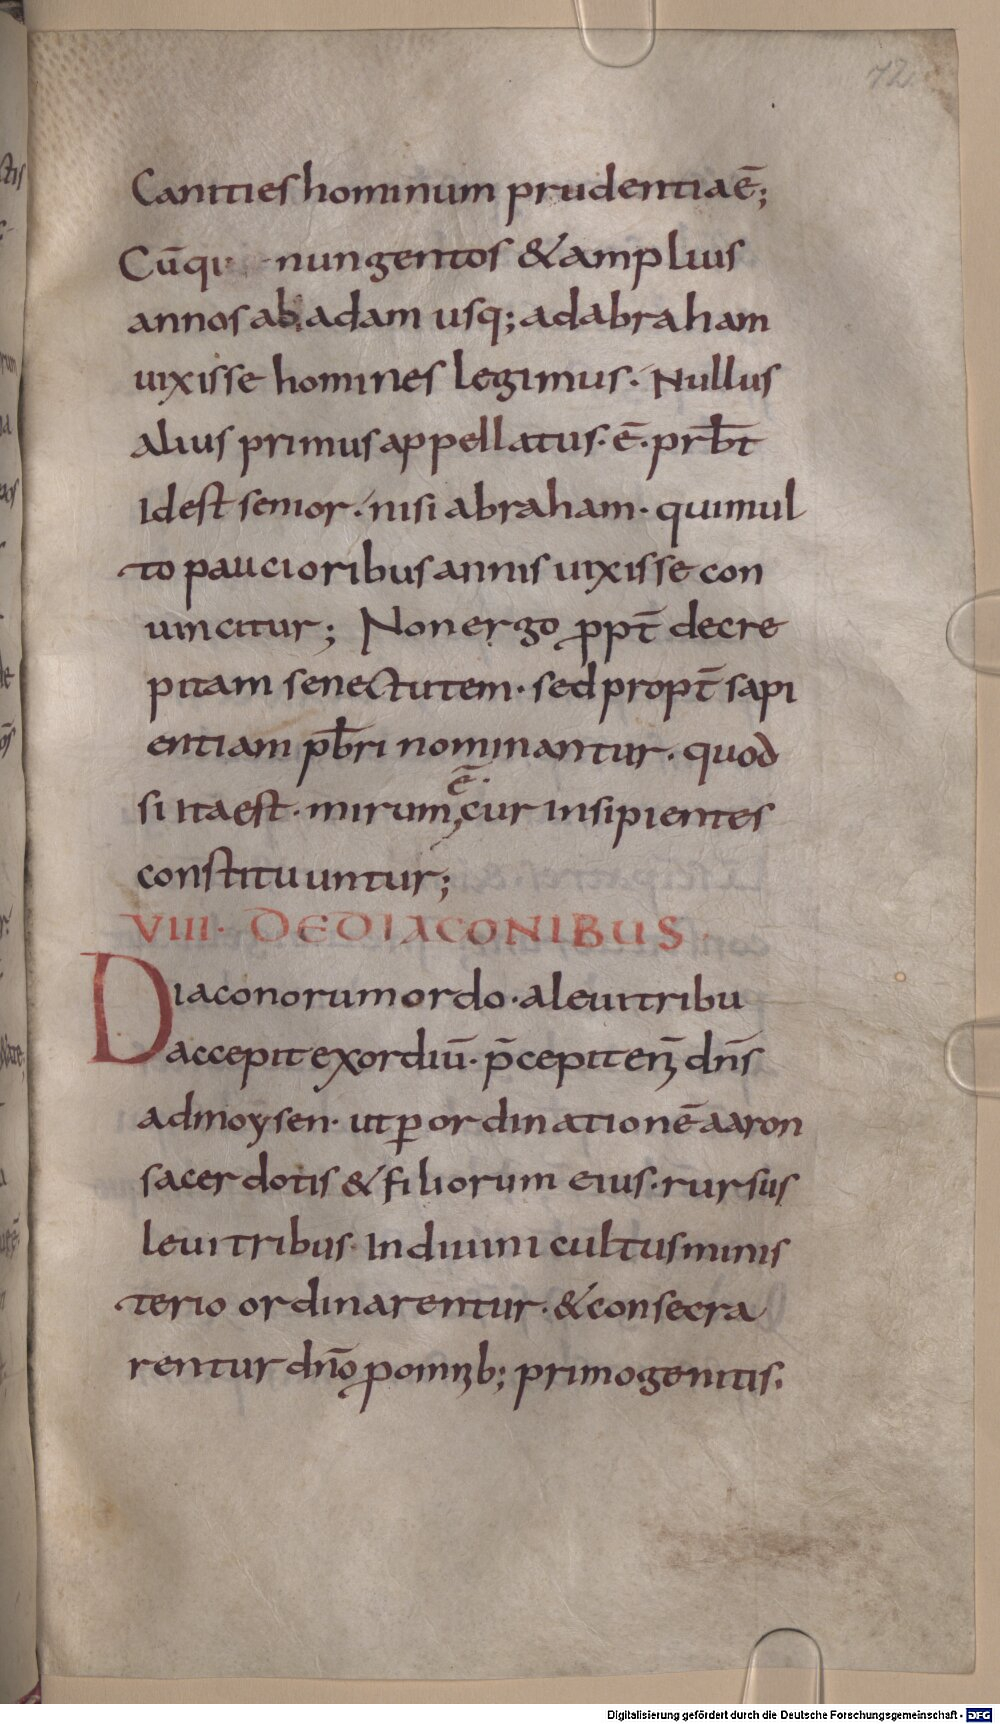 72
Canities hominum prudentia ē;
Cūqi nungentos & amplius
annos ab adam usq; ad abraham
uixisse homines legimus. Nullus
alius primus appellatus. ē. prb̄t
Id est senior. nisi abraham. qui mul
to paucioribus annis uixisse con
uincitur; Non ergo ꝓpt̄ decre
pitam senectutem. sed propt̄ sapi
entiam pb̄ri nominantur. quod
si ita est. mirum ē. cur insipientes
constituuntur;
VIII. DE DIACONIBUS
Diaconorum ordo. a leui tribu
accepit exordiū. p̄cepit enī dn̄s
ad moysen. ut ꝑ ordinationē aaron
sacerdotis & filiorum eius. rursus
leui tribus. In diuini cultus minis
terio ordinarentur. & consecra
rentur dn̄o ꝓ omnib; primogenitis.
Digitalisierung gefördert durch die Deutsche Forschungsgemeinschaft - DFG